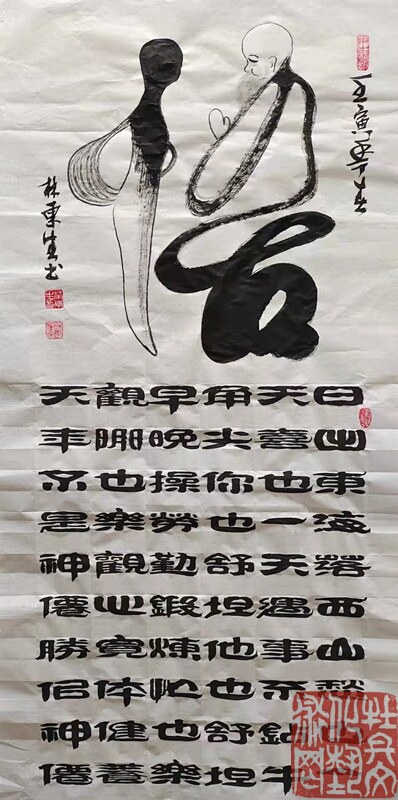 悟
壬寅年春
日出東海落西山愁也
天喜也一天遇事不鑽牛
角尖你也舒坦他也舒坦
早晚操勞勤鍛煉忙也樂
觀閑也樂觀心寬体健養
天年不是神僊勝佀神僊